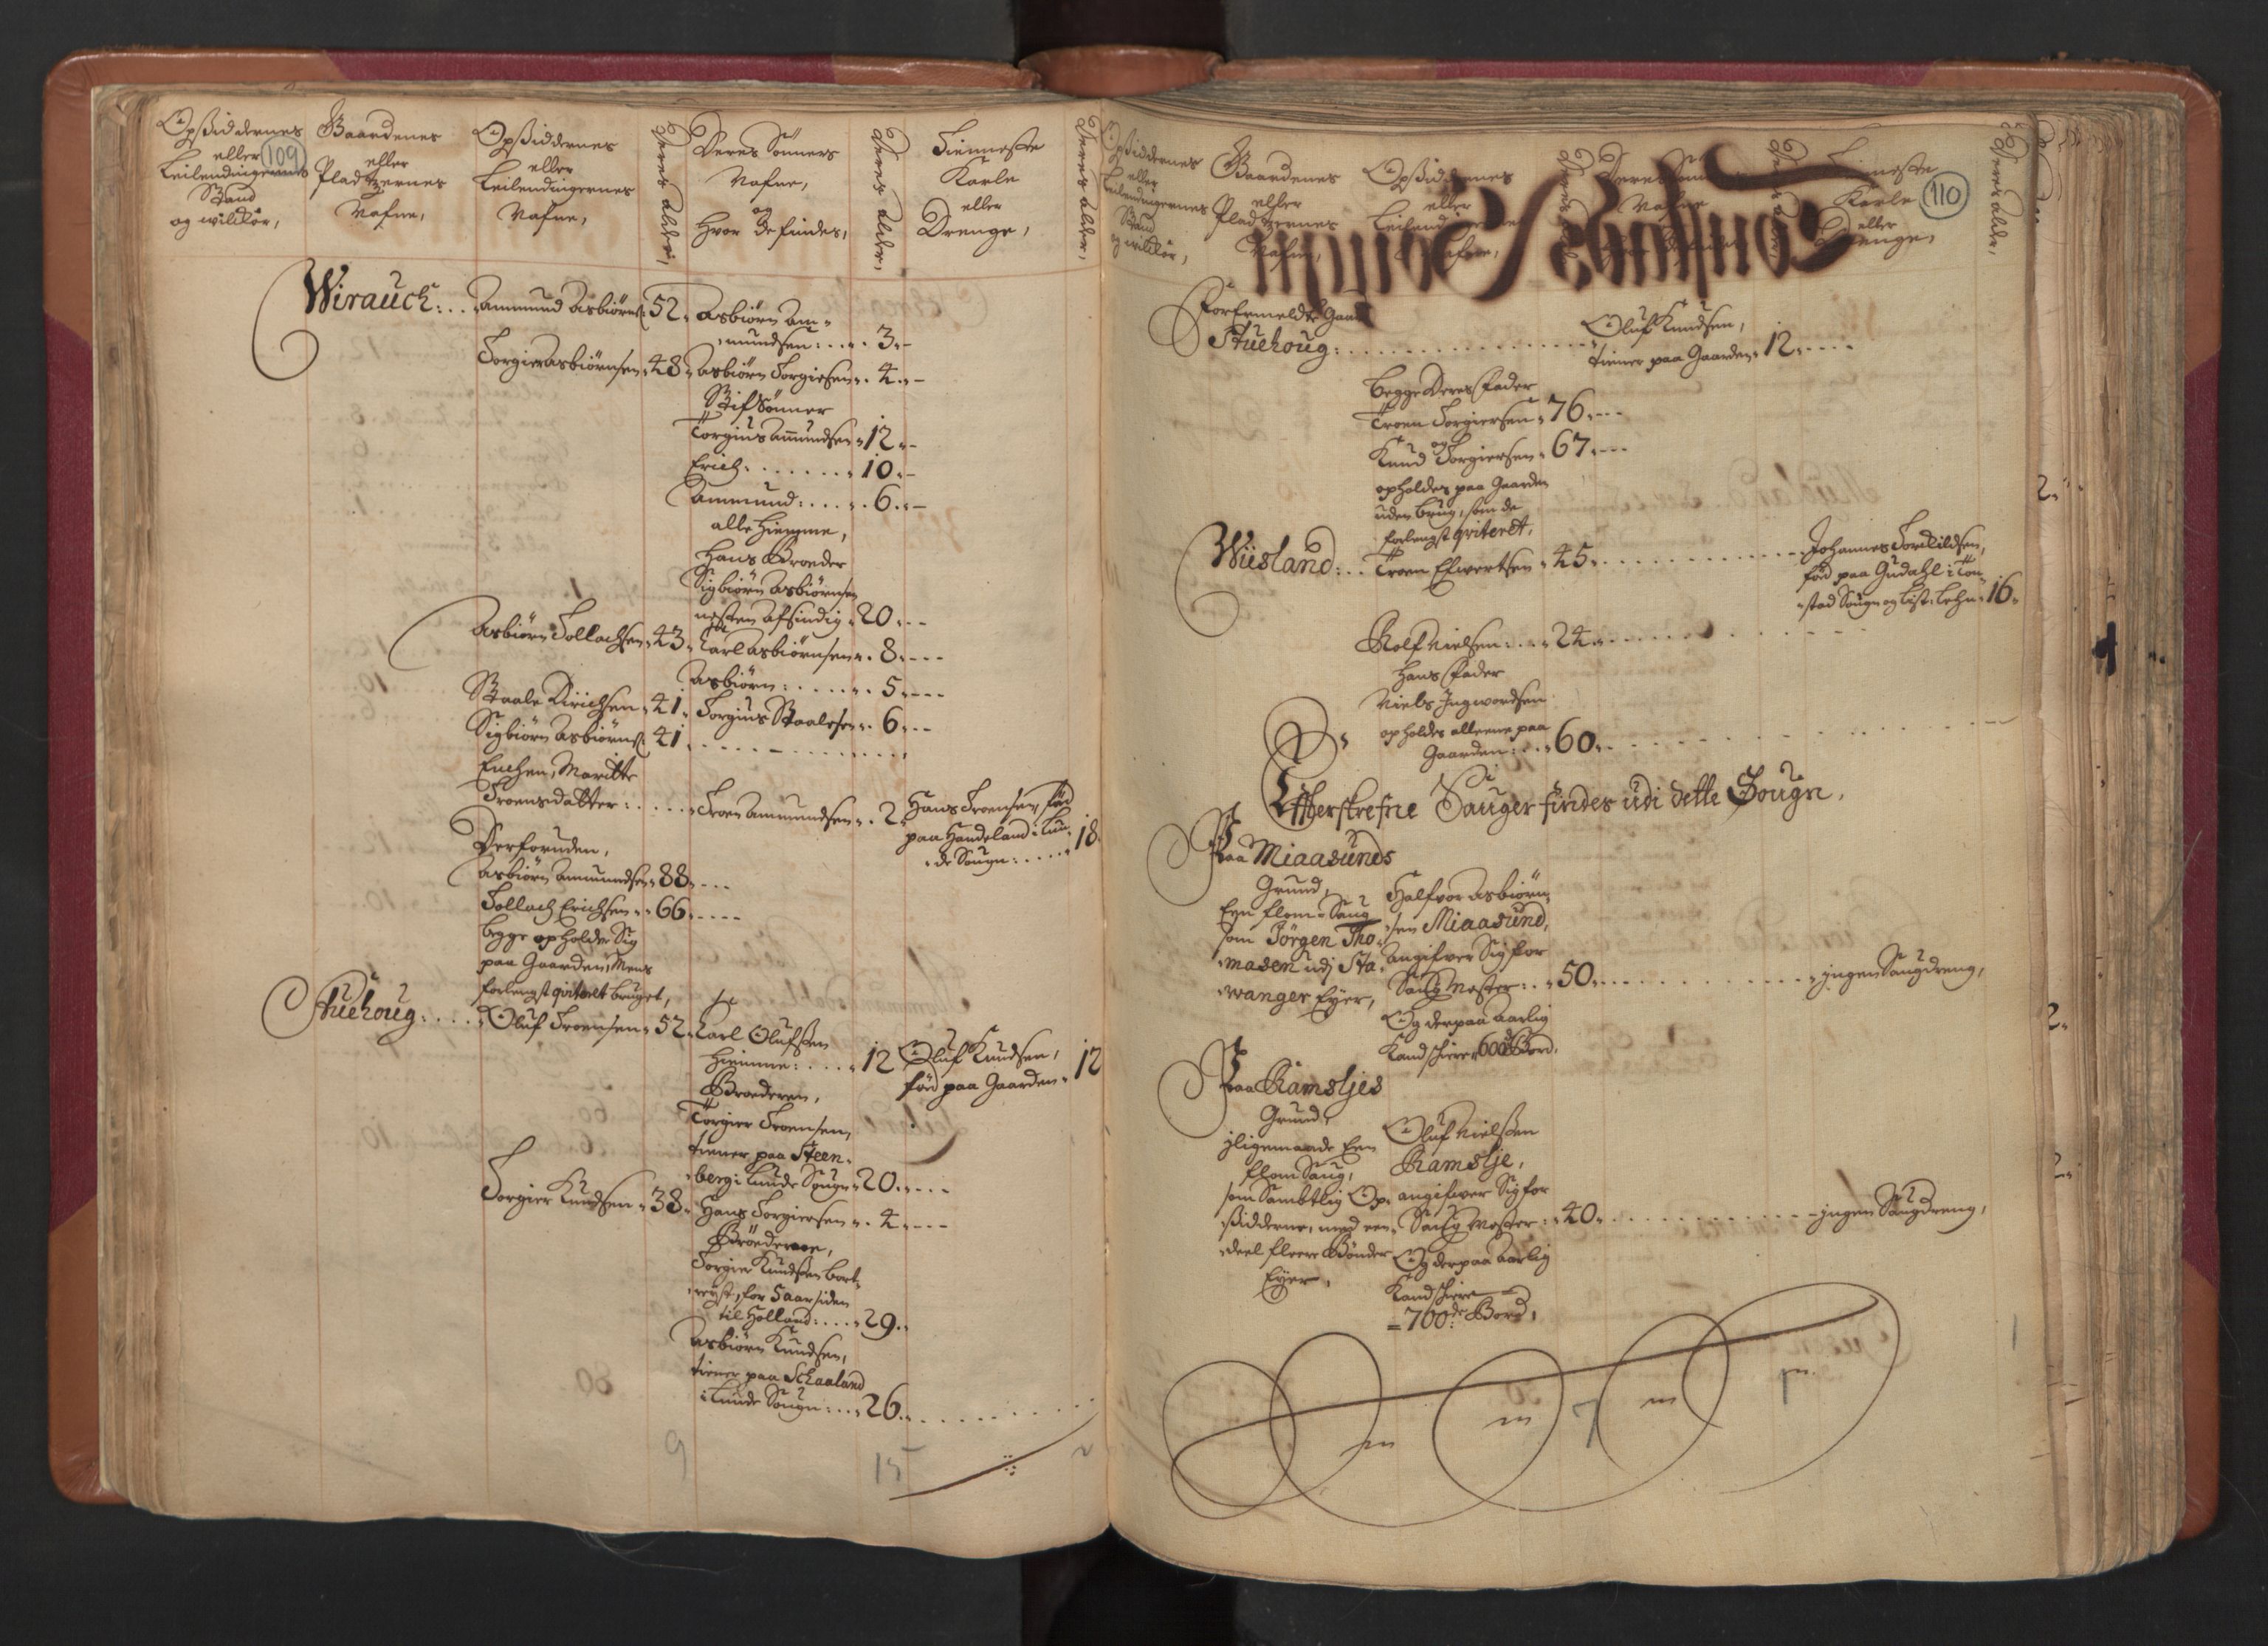 109
Opsiddernes
eller
Leilendingernes
Stand
og wilkor,
Gaardenes
eller
Pladtzernes
Nafne,
Opsiddernes
eller
Leilendingernes
Nafne,
Deres alder,
Deres Sönners
Nafne,
og
Hvor de findes,
Deres alder,
Tienneste
Karle
eller
Drenge,
Deres alder,
Wirauch: Ammund Asbiörns: 52. Asbiörn Am-
mundsen: 3.
Torgier Asbiörnsen 48. Asbiörn Torgiersen 4.
Stifsönner
Torgius Amundsen 12
Erich 10.
Ammund: 6.
alle hiemme,
Hans Broeder
Sigbiörn Asbiörnsen
nesten afsindig 20.
Asbiörn Tollachsen 43. Carl Asbiörnsen 8.
Asbiörn: 5.
Staale Dirichsen 41. Torgius Staalesen 6.
Sigbiörn Asbiörns: 41.
Enchen, Maritte
Troensdatter: Troen Ammundsen 2. Hans Troensen, föd
paa Handeland i Lun-
de Sougn: 18.
Derforuden,
Asbiörn Ammundsen 88.
Tollach Erichsen 66.
begge opholder Sig
paa Gaarden, Mens
forlengst qviteret bruget,
Stuehoug: Oluf Troensen 52. Carl Olufsen
hiemme: 12 Oluf Knudsen,
föd paa Gaarden 12
Broederen,
Torgier Troensen,
tiener paa Steen-
berg i Lunde Sougn 20.
Torgier Knudsen 38. Hans Torgiersen 4.
Bröederne,
Torgier Knudsen bort-
reyst, for 5 aar siden
til Holland: 29.
Asbiörn Knudsen,
tiener paa Schaaland
i Lunde Sougn: 26.
9
15
2
110
Opsiddernes
eller
Leilendingernes
Stand
og wilkor,
Gaardenes
eller
Pladtzernes
Nafne,
Opsiddernes
eller
Nafne,
Nafne
Tienneste
Karle
eller
Drenge,
Deres alder,
Forermeldte Gaard
Stuehoug: Oluf Knudsen,
tiener paa Gaarden 12.
begge Deres Fader
Troen Torgiersen 76.
og
Knud Torgiersen 67.
opholdes paa Gaarden
uden brug, som de
forlengst qviteret,
Wiisland: Troen Elwertsen 45. Johannes Torkildsen,
föd paa Gudahl i Ton-
stad Sougn og List: Lehn 16.
Rolf Nielsen: 24.
Hans Fader
Niels Ingwordsen
opholdes alleene paa
Gaarden: 60.
Efterskrefne Sauger findes udi dette Sougn.
Paa Miaasunds
Grund,
Een flom-Saug
som Jörgen Tho-
masen udj Sta-
wanger Eyer,
Halfvor Asbiörn-
sen Miaasund,
angifver Sig for
Saug Mester: 50. jngen Saugdreng,
Og derpaa aarlig
Kand schiere 600de Bord.
Paa Ramsljes
Grund,
jligemaade Een
flom Saug,
som Sambtlig Op-
sidderne, med een
deel fleere Bönder
Eyer,
Oluf Nielsen
Ramslje,
angifwer Sig for
Saug Mester: 40. jngen Saugdreng,
Og derpaa aarlig
Kand schiere
700de Bord,
7
1